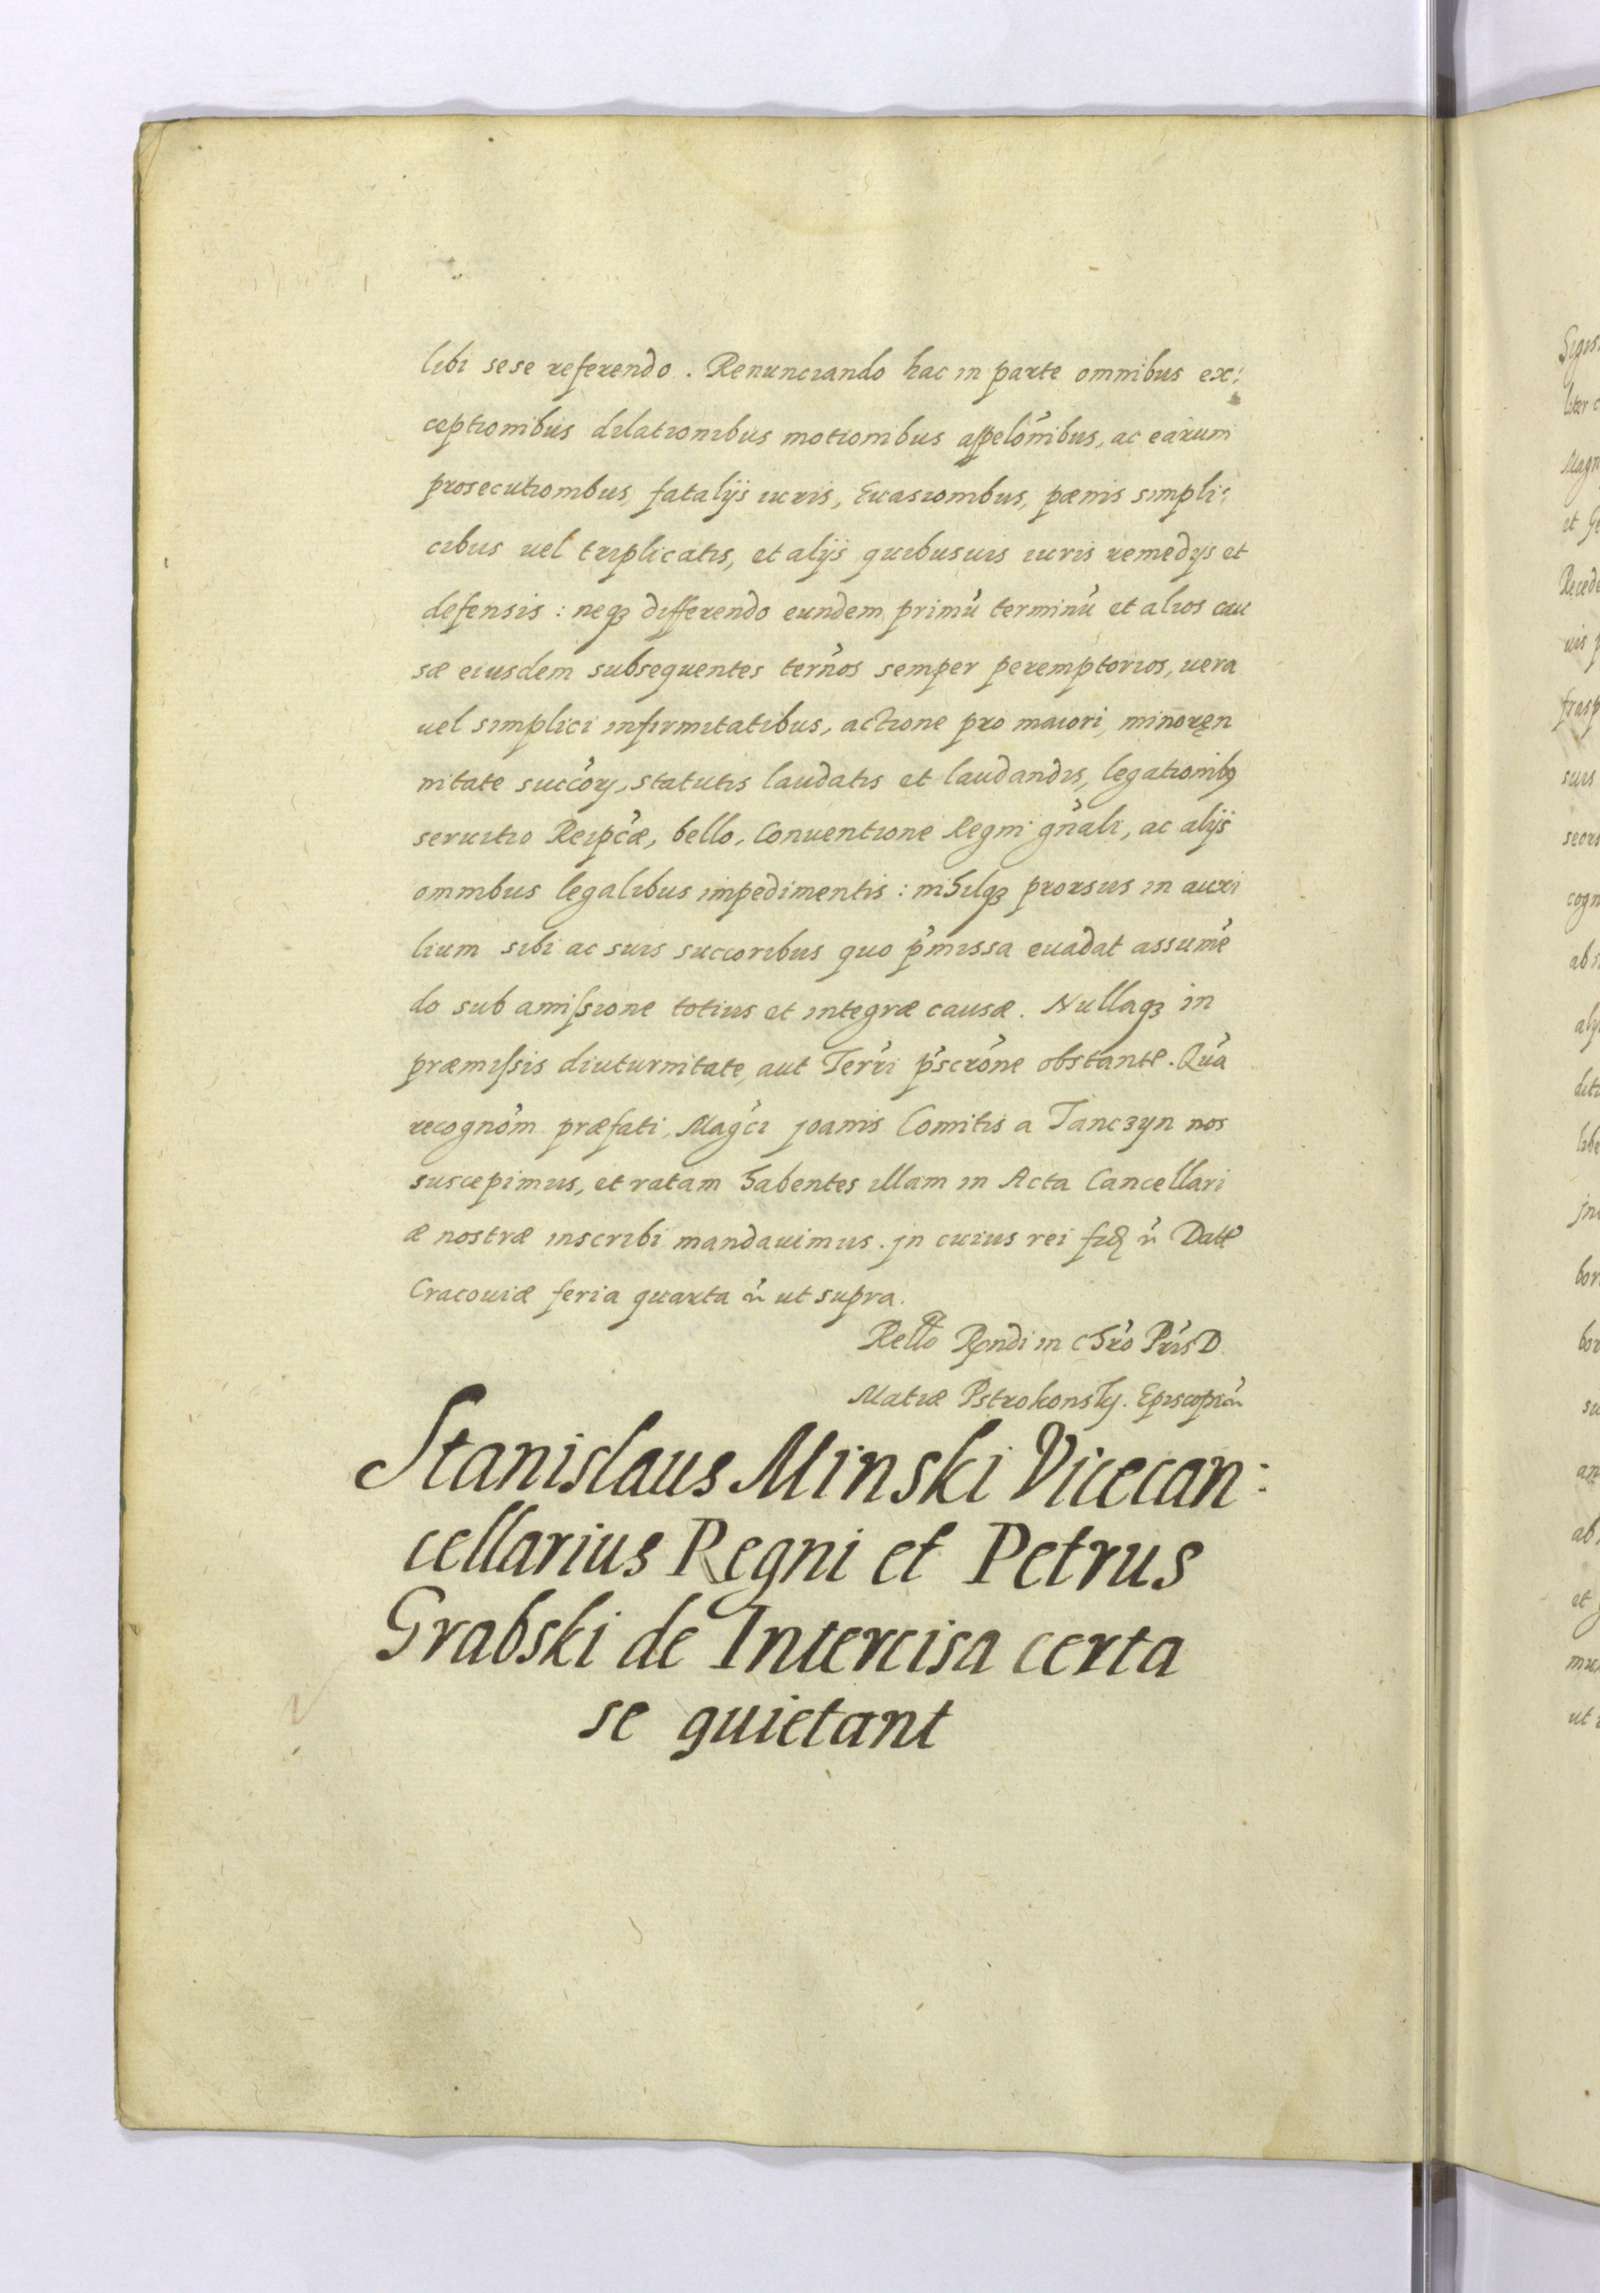 libi sese referendo. Renunciando hac in parte omnibus ex:
ceptionibus dilationibus motionibus appelo͂nibus, ac earum
prosecutionibus, fatalijs iuris, Euasionibus, pœnis simpli:
cibus uel triplicatis, et alijs quibusuis iuris remedijs et
defensis: neqꝫ differendo eundem primu͂ terminu͂ et alios cau
sæ eiusdem subsequentes ter͂nos semper peremptorios, uera
uel simplici infirmitatibus, actione pro maiori, minoren
nitate succo͂ꝝ, statutis laudatis et laudandis, legationibꝰ
seruitio Reipc͂æ, bello, Conuentione Regni gn͂ali, ac alijs
omnibus legalibus impedimentis: nihilqꝫ prorsus in auxi
lium sibi ac suis succoribus quo p͂missa euadat assume͂
do sub amissione totius et integræ causæ. Nullaqꝫ in
præmissis diuturnitate, aut Ter͂ri p͂scro͂ne obstante. Qua͂
recogno͂m præfati, Mag͂ci joanis Comitis a Tanczyn nos
suscepimus, et ratam habentes illam in Acta Cancellari
æ nostræ inscribi mandauimus. jn cuius rei fid Datt
Cracouiæ feria quarta ut supra.
Rello Rndi in Chr͂o Pr͂is D
Matiæ Pstrokonsky. Episcopi
Stanislaus Minski Vicecan:
cellarius Regni et Petrus
Grabski de Intercisa certa
se quietant
Magn
et
suis
cogn
ut